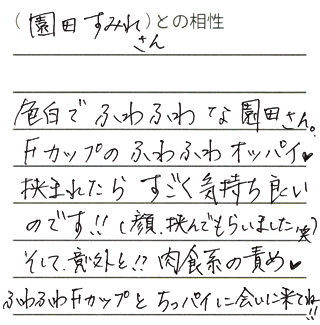 (園田すみれ)との相性
さん
色白で ふわふわ な 園田さん。
Fカップの ふわふわ オッパイ♥
挟まれたら すごく気持ち良い
のです!! (顔、挟んでもらいました笑)
そして、意外と!? 肉食系の責め♥
ふわふわFカップと ちっパイに会いに来てね!!